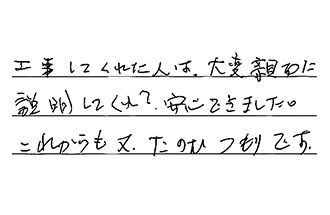 工事してくれた人は、大変親切に
説明してくれ?、安心できました。
これからも又、たのむつもりです。